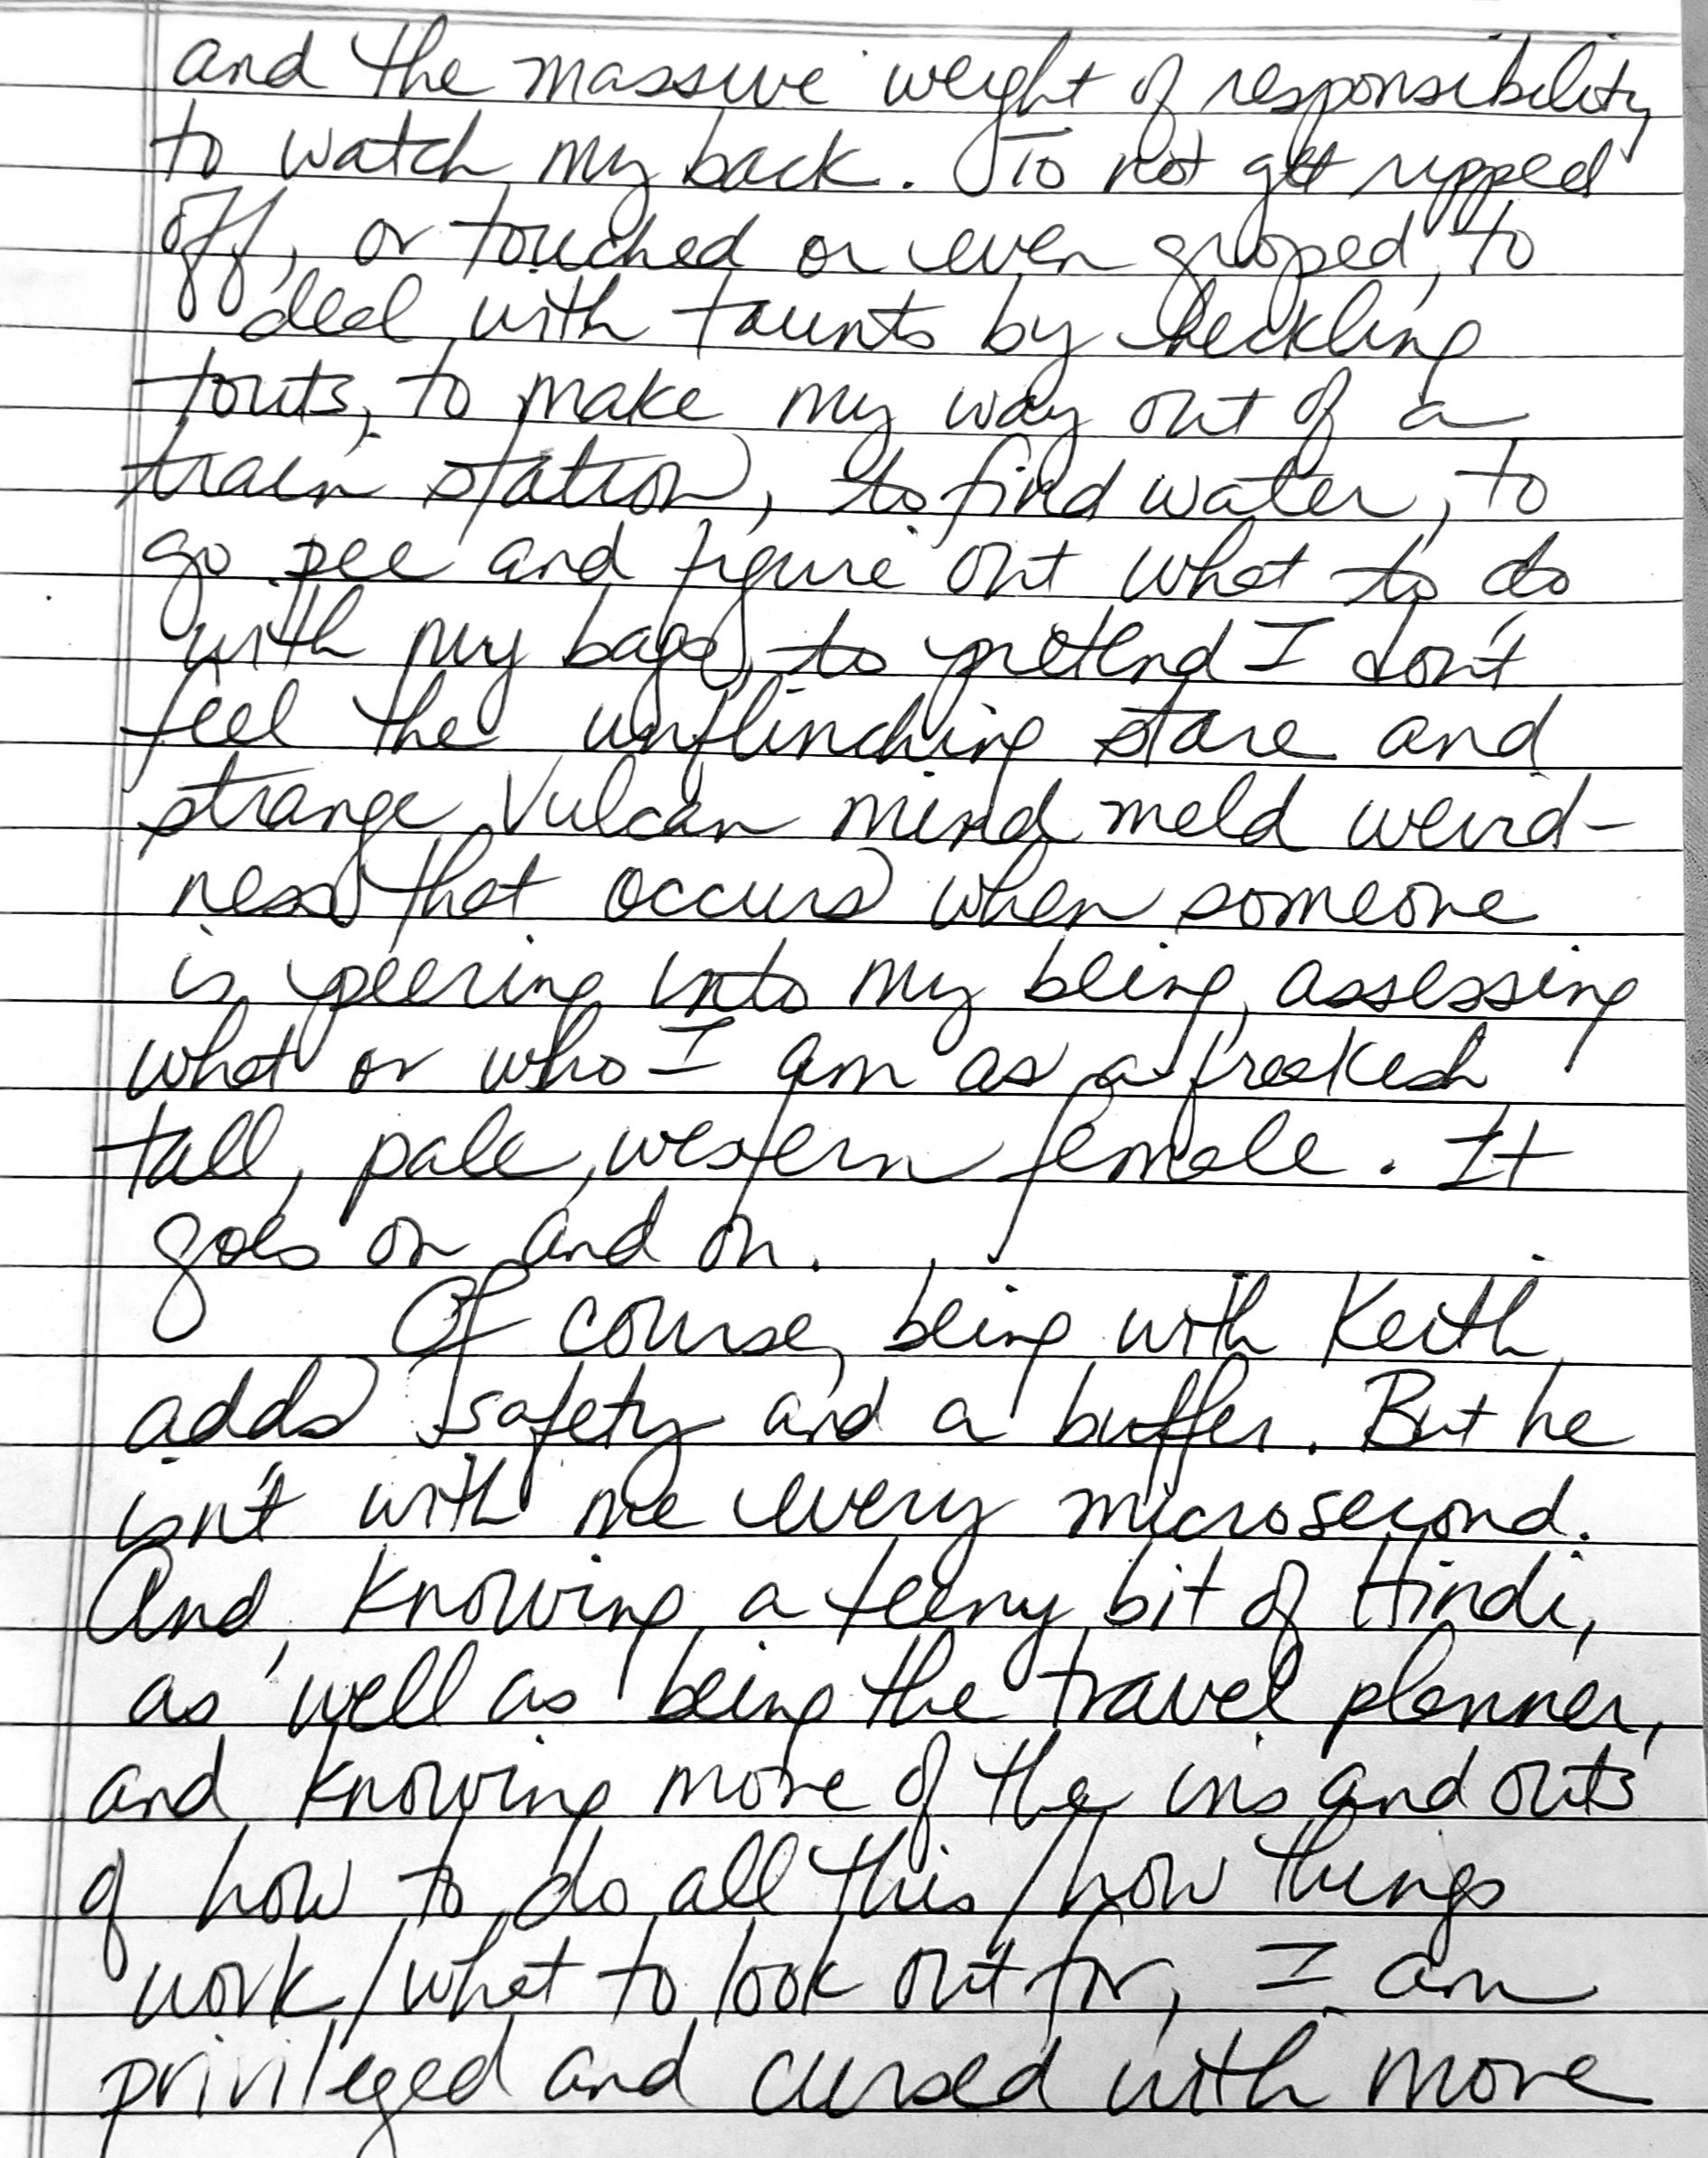 and the massive weight of responsibility
to watch my back. To not get ripped
off, or touched or even groped, to
deal with taunts by heckling
touts, to make my way out of a
train station, to find water, to
go pee and figure out what to do
with my bags, to pretend I don't
feel the unflinching stare and
strange Vulcan mind meld weird-
ness that occurs when someone
is peering into my being, assessing
what or who I am as a freakish
tall, pale, western female. It
goes on and on.
Of course, being with Keith
adds safety and a buffer. But he
isn't with me every microsecond.
And, knowing a teeny bit of Hindi,
as well as being the travel planner,
and knowing more of the ins and outs
of how to do all this/how things
work/what to look out for, I am
privileged and cursed with more